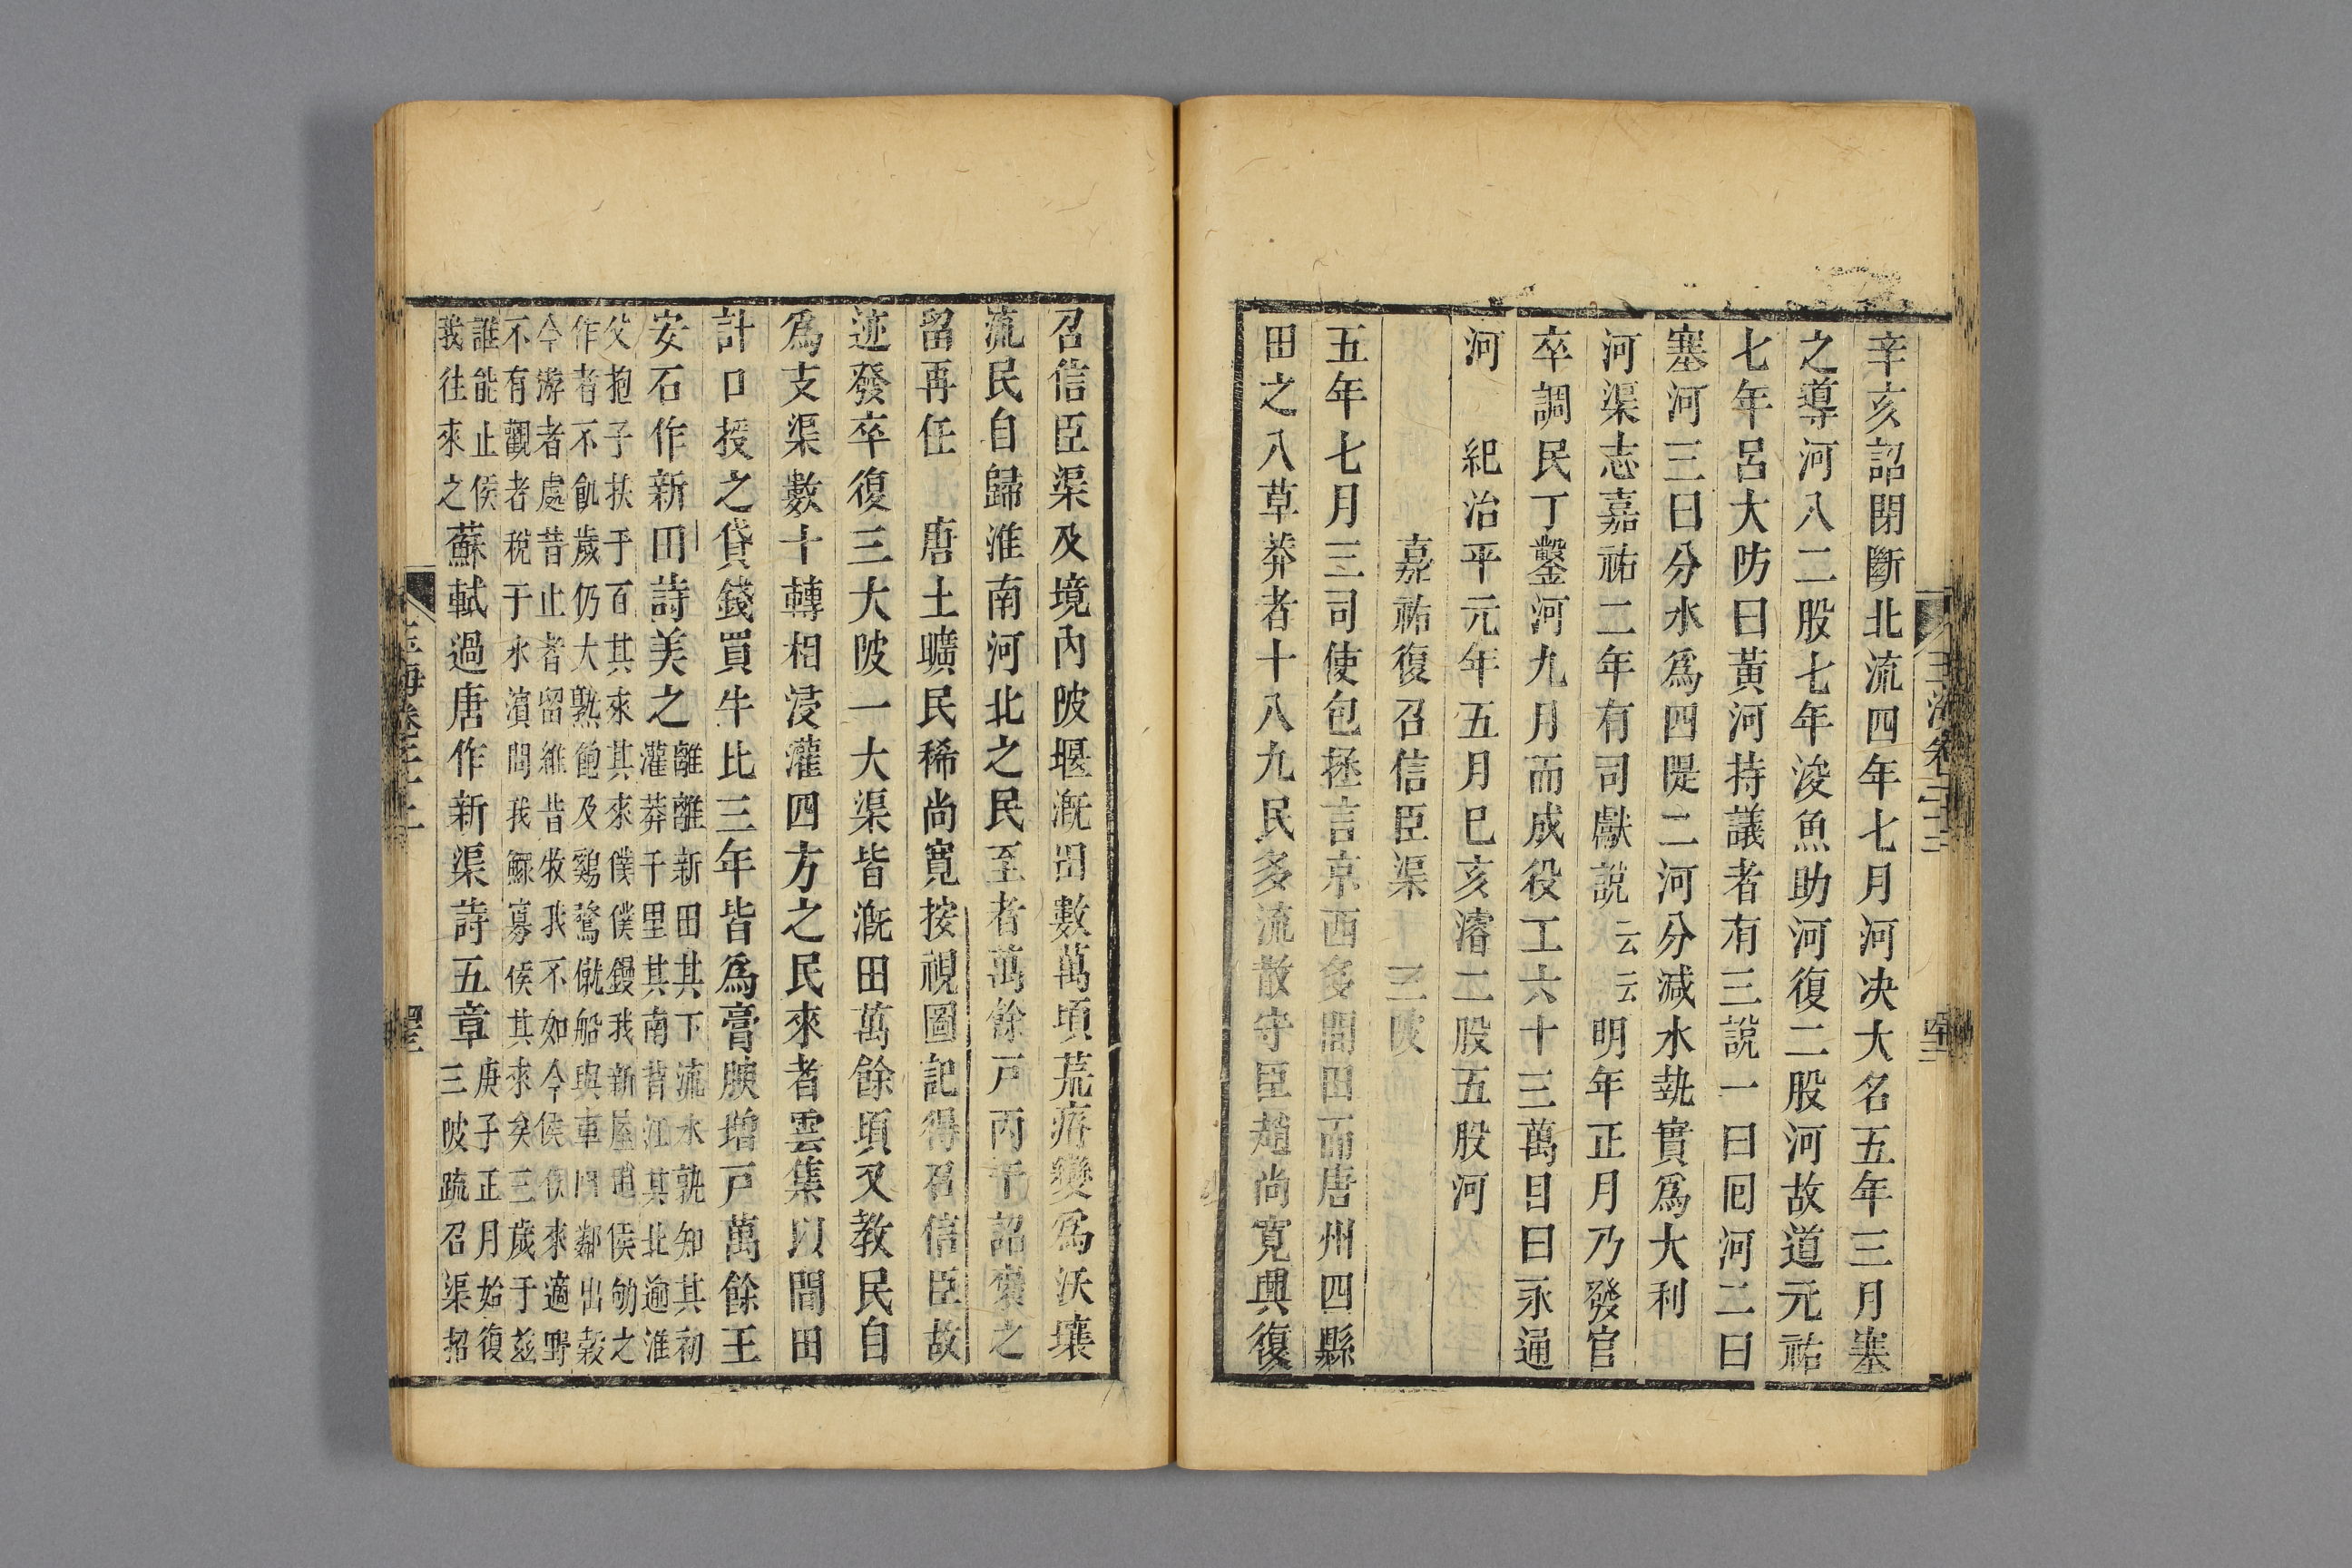 辛亥詔閉斷北流四年七月河决大名五年三月塞
之導河入二股七年浚魚助河復二股河故道元祐
七年呂大防曰黃河持議者有三説一曰囘河二曰
塞河三曰分水爲四隄二河分減水埶實爲大利
河渠志嘉祐二年有司獻説云云明年正月乃發官
卒調民丁鑿河九月而成役工六十三萬日曰永通
河 紀治平元年五月巳亥濬二股五股河
嘉祐復召信臣渠 三陂
五年七月三司使包拯言京西多閒田而唐州四縣
田之入草莽者十八九民多流散守臣趙尚寬興復
召信臣渠及境内陂堰漑田數萬頃荒瘠變爲沃壤
流民自歸淮南河北之民至者萬餘戸丙午詔襃之
留再任 唐土曠民稀尚寛按視圖記得召信臣故
迹發卒復三大陂一大渠皆漑田萬餘頃又教民自
爲支渠數十轉相浸灌四方之民來者雲集以閒田
計口授之貸錢買牛比三年皆爲膏腴增戸萬餘王
安石作新田詩美之
離離新田其下流水孰知其初
灌莽千里其南背江其北逾淮
父抱子扶于百其來其來僕僕鏝我新屋趙侯劬之
作者不飢歲仍大熟飽及鷄鶩僦船與車四鄰出穀
今游者處昔止者留維昔牧我不如今侯侯來適野
不有觀者稅于水濱問我鰥寡侯其來矣三歲于兹
誰能止侯
我往來之
蘇軾過唐作新渠詩五章
庚子正月始復
三陂疏召渠招